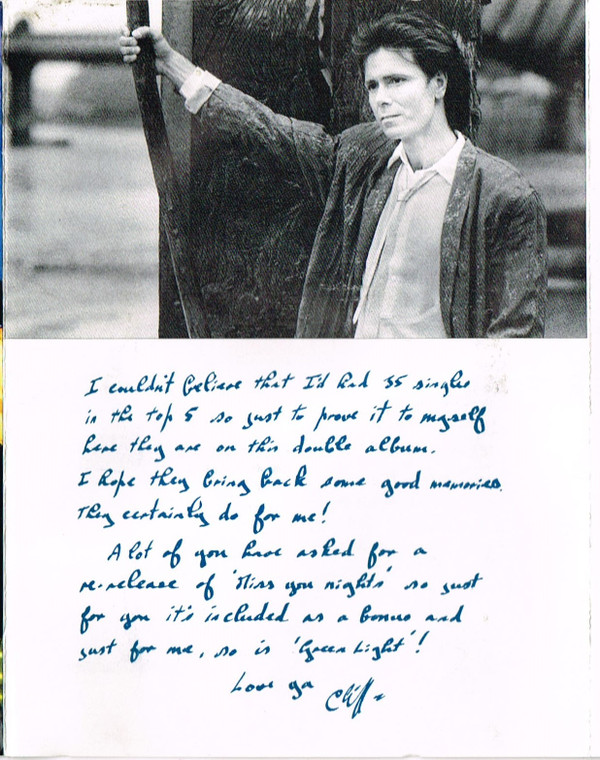 I couldn't believe that I'd had 35 singles
in the top 5 so just to prove it to myself
here they are on this double album.
I hope they bring back some good memories.
They certainly do for me!
A lot of you have asked for a
re-release of 'Miss you nights' so just
for you it's included as a bonus and
just for me, so is 'Green Light'!
Love ya Cliff